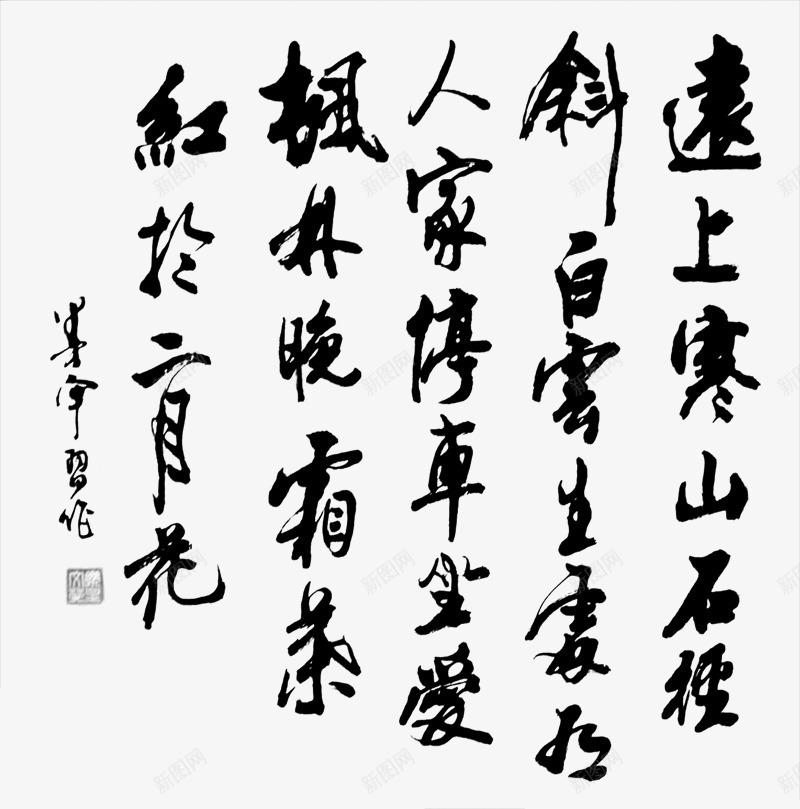 遠上寒山石徑
斜白雲生處有
人家停車坐愛
楓林晚霜葉
紅於二月花
習作
新图网